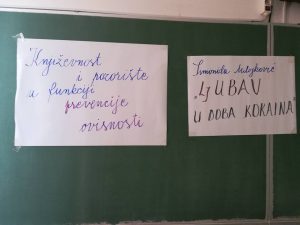 "Književnost
i pozorište
u funkciji
prevencije
ovisnosti
Simonida
"LJUBAV
U DOBA KOKAINA"